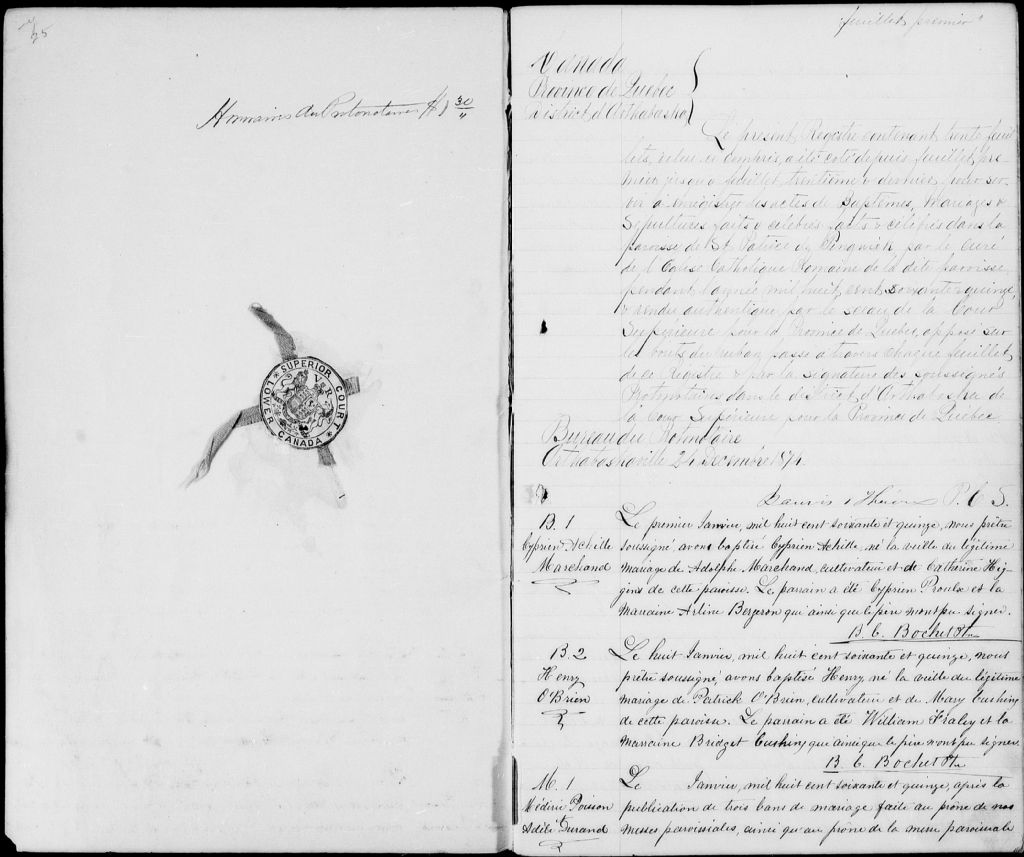 Honoraires du Protonotaire $1 30/"
SUPERIOR COURT
LOWER CANADA
V R
"feuillet premier"
Canada
Province de Quebec
District d'Arthabaska
Le present Registre contenant trente feuil
lets, celui ci compris, a été coté depuis feuillet pre
mier jusqu'a feuillet trentieme & dernier, pour ser
vir à enregistrer les actes de Baptêmes, Mariages &
Sépultures faits & célébrés faits & célébrés dans la
paroisse de St Patrice de Tingwick par le Curé
de l'Eglise Catholique Romaine de la dite paroisse
pendant l'année mil huit cent soixante & quinze,
& rendu authentique par le sceau de la Cour
Supérieure pour la Province de Quebec, apposé sur
les bouts du ruban passé à travers chaque feuillet
de ce Registre & par la signature des soussignés
Protonotaires dans le district d'Arthabaska de
la Cour Supérieure pour la Province de Quebec
Bureau du Protonotaire
Arthabaskaville 24 Decembre 1874.
P. C. S.
B. 1
Cyprien Achille
Marchand
Le premier Janvier, mil huit cent soixante et quinze, nous prêtre
soussigné, avons baptisé Cyprien Achille, né la veille du légitime
mariage de Adolphe Marchand, cultivateur et de Catherine Hig-
gins de cette paroisse. Le parrain a été Cyprien Proulx et la
marraine Arline Bergeron qui ainsi que le père n'ont pu signer.
B. C. Bochet Ptre
B. 2
Henry
O'Brien
Le huit Janvier, mil huit cent soixante et quinze, nous
prêtre soussigné, avons baptisé Henry, né la veille du légitime
mariage de Patrick O'Brien, cultivateur et de Mary Cushing
de cette paroisse. Le parrain a été William Fraley et la
marraine Bridget Cushing qui ainsi que le père n'ont pu signer
B. C. Bochet Ptre
M. 1
Médéric Poisson
Adèle Durand
Le Janvier, mil huit cent soixante et quinze, après la
publication de trois bans de mariage faite au prône de nos
messes paroissiales, ainsi qu'au prône de la messe paroissiale